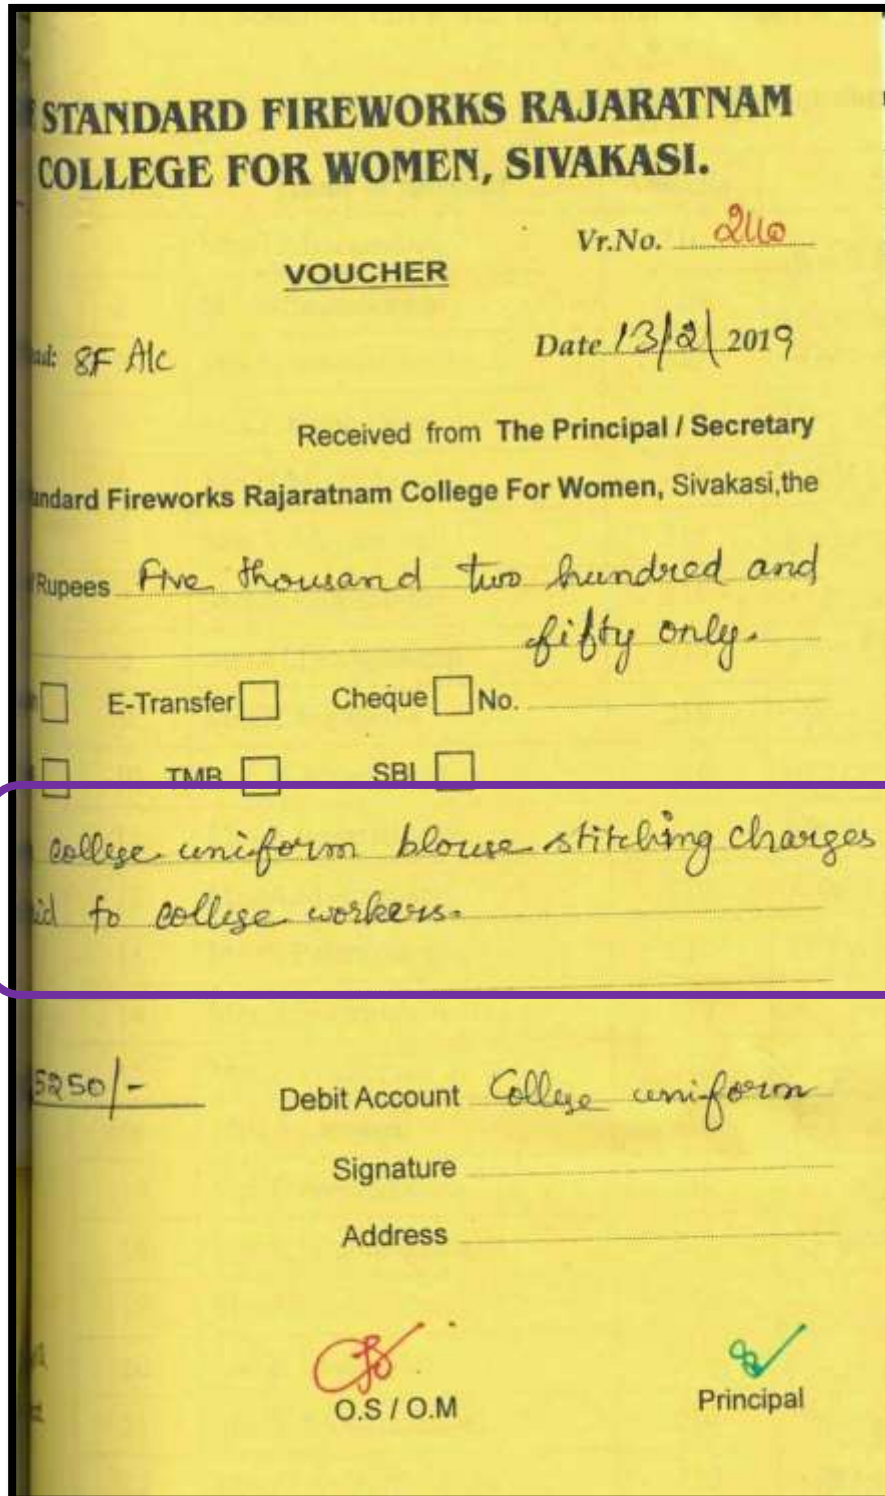 STANDARD FIREWORKS RAJARATNAM
COLLEGE FOR WOMEN, SIVAKASI.
Vr.No.
VOUCHER
Date 13/2/2019
Received from The Principal / Secretary
Fireworks Rajaratnam College For Women, Sivakasi,the
Rupees Five thousand two hundred and
fifty only.
E-Transfer Cheque No.
TMB SBI
college uniform blouse stitching charges
to college workers.
5250/- Debit Account College uniform
Signature
Address
O.S / O.M Principal